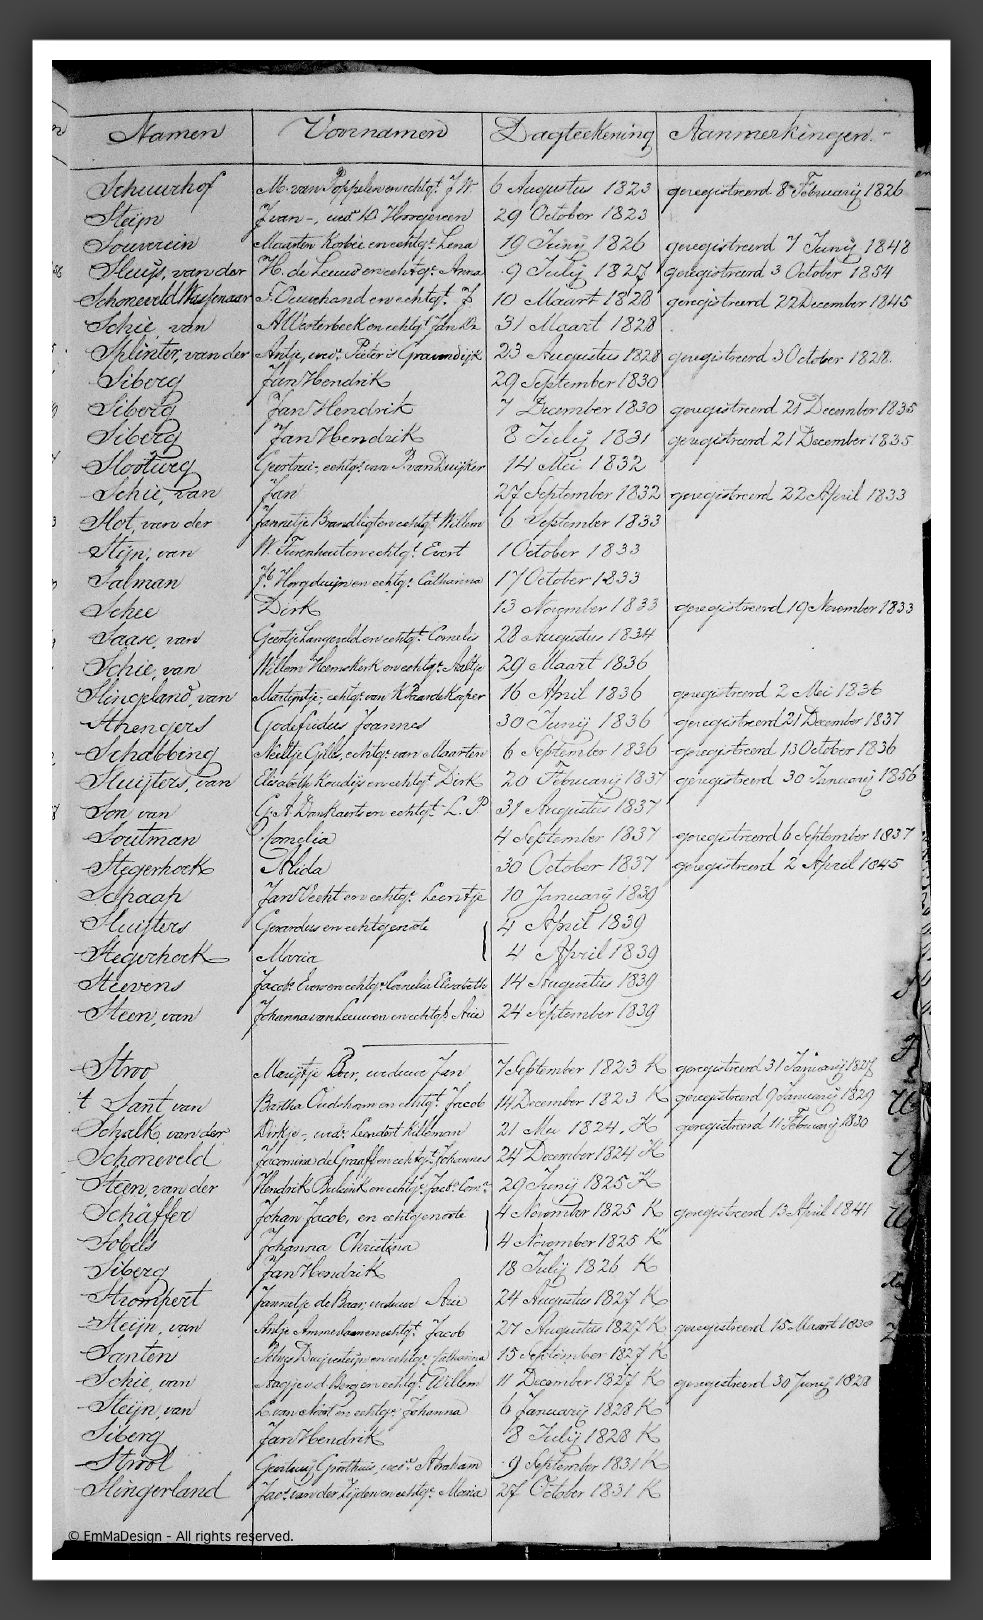 Namen Voornamen Dagteekening Aanmerkingen.
Schuurhof M. van Poppelen en echtgt. J W 6 Augustus 1823 geregistreerd 8 February 1826
Steijn J van -, wed. D. Hoogeveen 29 October 1823
Souverein Maarten Korbée en echtgt. Lena 19 Junij 1826 geregistreerd 7 Junij 1848
Sluijs, van der H. de Leeuw en echtgt. Anna 9 Julij 1827 geregistreerd 3 October 1854
Schoneveld Wassenaar S. Ouwehand en echtgt. J 10 Maart 1828 geregistreerd 22 December 1845
Schie, van A Westerbeek en echtgt. Jan Dz 31 Maart 1828
Splinter, van der Antje, wed. Pieter 's Gravendijk 23 Augustus 1828 geregistreerd 3 October 1828.
Siberg Jan Hendrik 29 September 1830
Siberg Jan Hendrik 7 December 1830 geregistreerd 21 December 1835
Siberg Jan Hendrik 8 Julij 1831 geregistreerd 21 December 1835
Slootweg Geertrui-, echtgt. van P. van Duijker 14 Mei 1832
Schie, van Jan 27 September 1832 geregistreerd 22 April 1833
Slot, van der Jannetje Brandligt en echtgt. Willem 6 September 1833
Stijn, van W. Turenhout en echtgt. Evert 1 October 1833
Salman Jb. Hoogduijn en echtgt. Catharina 17 October 1833
Schee Dirk 13 November 1833 geregistreerd 19 November 1833
Saase, van Geertje Langeveld en echtgt. Cornelis 28 Augustus 1834
Schie, van Willem Heemskerk en echtgt. Aaltje 29 Maart 1836
Slingeland, van Martijntje, echtgt. van K Paardekooper 16 April 1836 geregistreerd 2 Mei 1836
Sthengers Godefridus Joannes 30 Junij 1836 geregistreerd 21 December 1837
Schabbing Neeltje Gilles, echtgt. van Maarten 6 September 1836 geregistreerd 13 October 1836
Sluijters, van Elisabeth Koudijs en echtgt. Dirk 20 February 1837 geregistreerd 30 January 1856
Son van G. A Donkaerts en echtgt. L. P. 31 Augustus 1837
Soutman Cornelia 4 September 1837 geregistreerd 6 September 1837
Stegerhoek Alida 30 October 1837 geregistreerd 2 April 1845
Schaap Jan Vecht en echtgt. Leentje 10 January 1839
Sluijters Gerardus en echtgenote 4 April 1839
Stegerhoek Maria 4 April 1839
Steevens Jacob en echtgt. Cornelia Elisabeth 14 Augustus 1839
Steen, van Johanna van Leeuwen en echtgt. Arie 24 September 1839
Stroo Marijtje Boer, weduwe Jan 7 September 1823 K geregistreerd 31 January 1827
't Sant van Bartha Oudshoorn en echtgt. Jacob 14 December 1823 K geregistreerd 9 January 1829
Schalk, van der Dirkje -, wed. Leendert Killeman 21 Mei 1824. K geregistreerd 11 February 1830
Schoneveld Jacomina de Graaff en echtgt. Johannes 24 December 1824 K
Steen, van der Hendrik en echtgt. Jacb. 29 Junij 1825 K
Schäffer Johan Jacob, en echtgenoote 4 November 1825 K geregistreerd 13 April 1841
Sobels Johanna Christina 4 November 1825 K
Siberg Jan Hendrik 18 Julij 1826 K
Strompert Jannetje de Baar, weduwe Arie 24 Augustus 1827 K
Steijn, van Antje Ammerlaan en echtgt. Jacob 27 Augustus 1827 K geregistreerd 15 Maart 1830
Santen Duijvesteijn en echtgt. Catharina 15 September 1827 K
Schie, van Aagje v d Berg en echtgt. Willem 11 December 1827 K geregistreerd 30 Junij 1828
Steijn, van L. van Noort en echtgt. Johanna 6 January 1828 K
Siberg Jan Hendrik 8 Julij 1828 K
Strool Geertruij Groothuis, wed. Abraham 9 September 1831 K
Slingerland Jacs. van der Zijden en echtgt. Maria 27 October 1831 K
© EmMaDesign - All rights reserved.